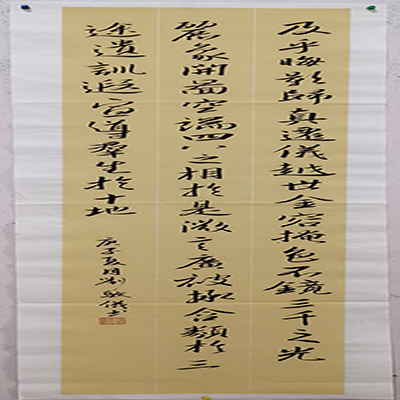 及乎晦影歸真遷儀越世金容掩色不鏡三千之光
麗象開圖空端四八之相於是微言廣被拯含類於三
途遺訓遐宣導羣生於十地
庚子 月劉 儀書